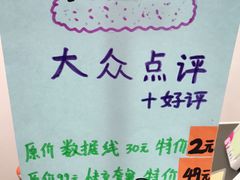 大众点评
+好评
原价 数据线 30元 特价 2元
原价99元 特价 49元